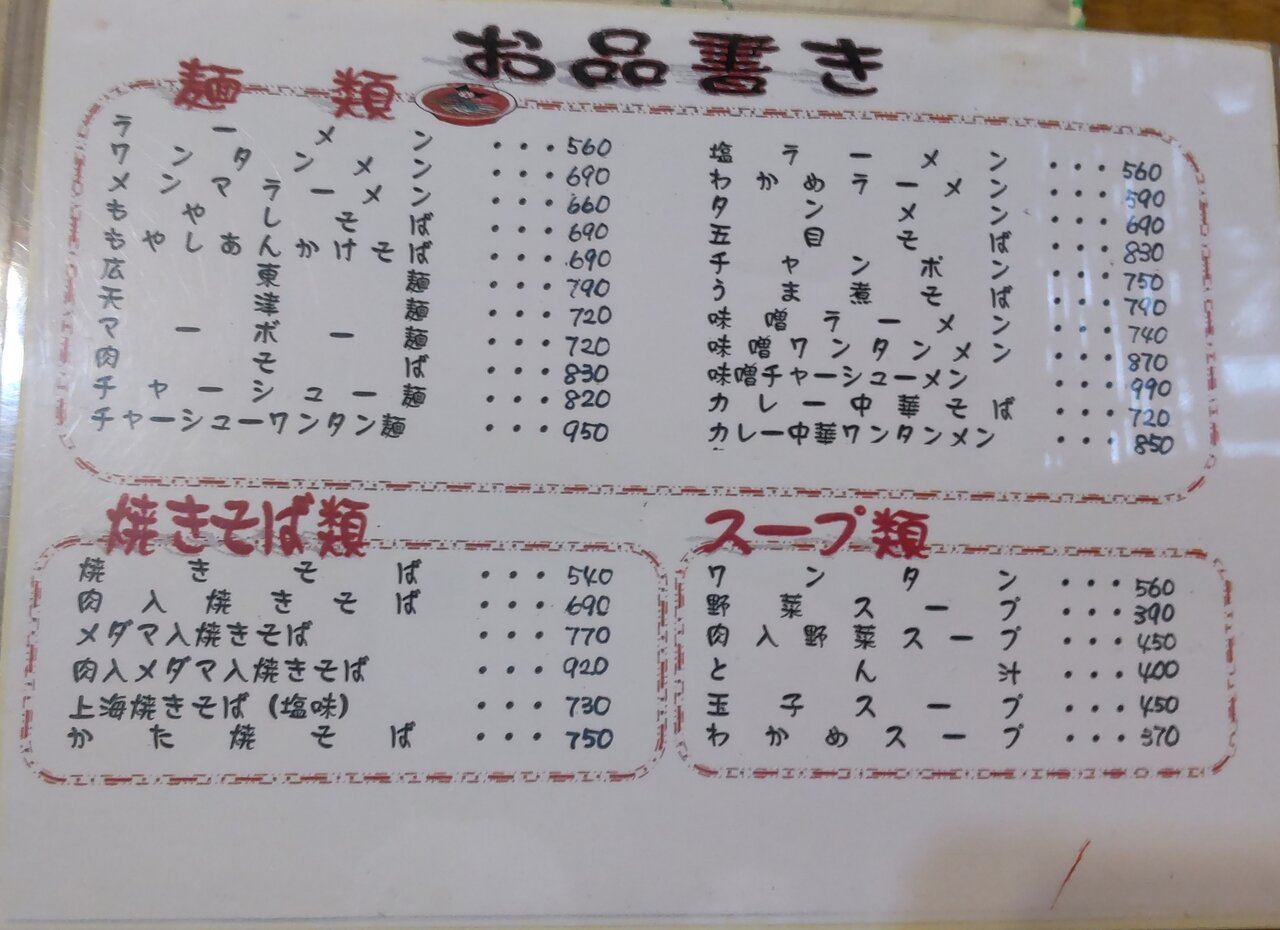 お品書き
麺類
ラーメン・・・560
ワンタンメン・・・690
メンマラーメン・・・660
もやしそば・・・690
もやしあんかけそば・・・690
広東麺・・・790
天津麺・・・720
マーボー麺・・・720
肉そば・・・830
チャーシュー麺・・・820
チャーシューワンタン麺・・・950
塩ラーメン・・・560
わかめラーメン・・・590
タンメン・・・690
五目そば・・・830
チャンポン・・・750
うま煮そば・・・790
味噌ラーメン・・・740
味噌ワンタンメン・・・870
味噌チャーシューメン・・・990
カレー中華そば・・・720
カレー中華ワンタンメン・・・850
焼きそば類
焼きそば・・・540
肉入焼きそば・・・690
メダマ入焼きそば・・・770
肉入メダマ入焼きそば・・・920
上海焼きそば(塩味)・・・730
かた焼そば・・・750
スープ類
ワンタン・・・560
野菜スープ・・・390
肉入野菜スープ・・・450
とん汁・・・400
玉子スープ・・・450
わかめスープ・・・370